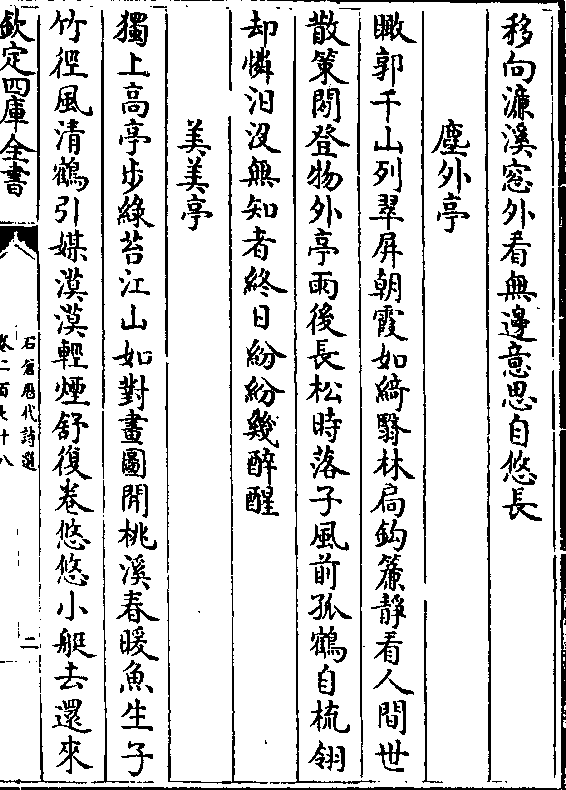 移向濂溪窓外看無邊意思自悠長
塵外亭
瞰郭千山列翠屏朝霞如綺翳林扃鈎簾靜看人間世
散策閒登物外亭雨後長松時落子風前孤鶴自梳翎
却憐汨没無知者終日紛紛幾醉醒
美美亭
獨上高亭步綠苔江山如對畫圖開桃溪春暖魚生子
竹徑風清鶴引媒漠漠輕煙舒復卷悠悠小艇去還來
欽定四庫全書
石倉歷代詩選
卷二百七十八
二